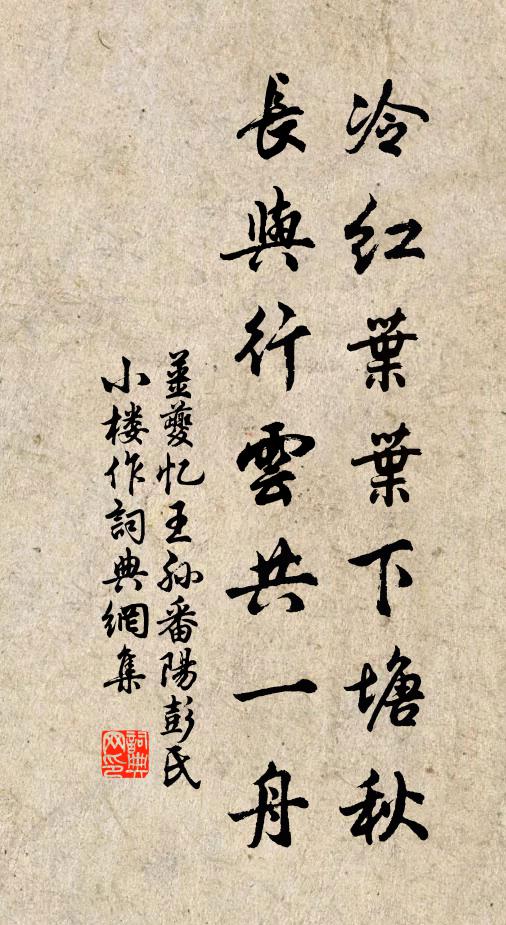 冷红葉葉下塘秋
長與行雲共一舟
姜夔忆王孙番陽彭氏
小楼作詞典網集
詞典网印